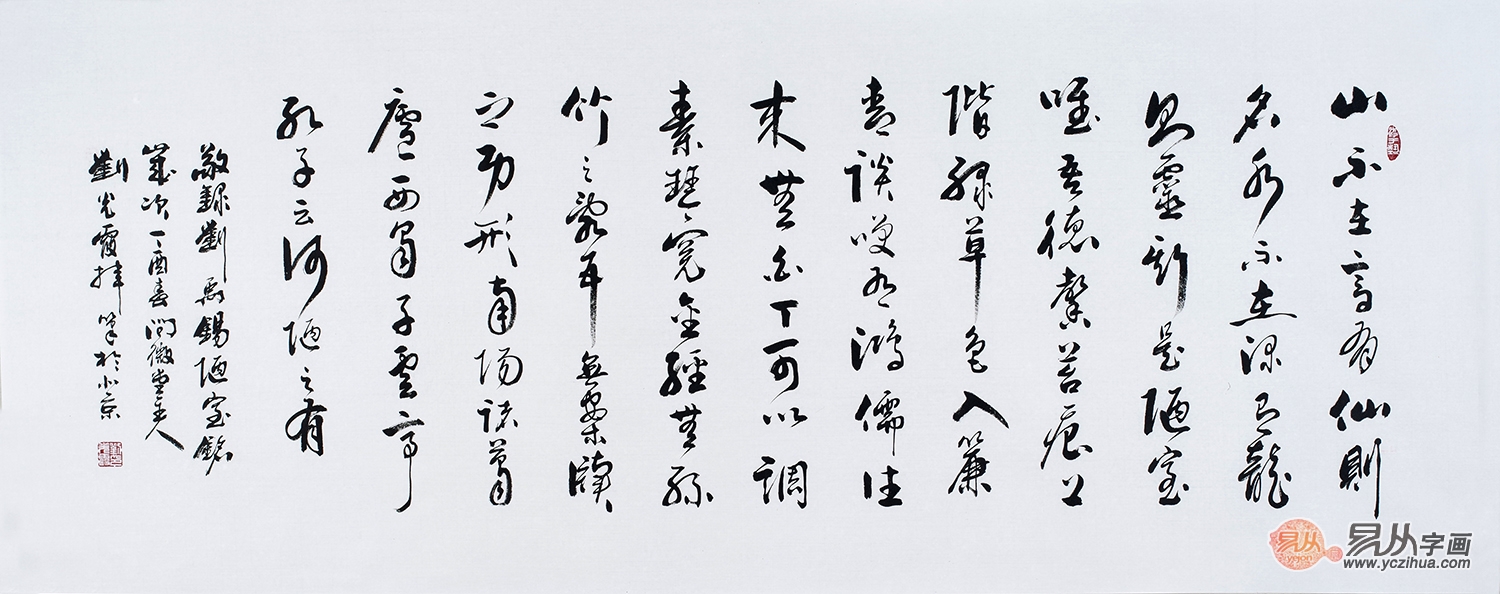 山不在高有仙則
名水不在深有龍
則靈斯是陋室
唯吾德馨苔痕上
階綠草色入簾
青談笑有鴻儒往
來無白丁可以調
素琴閱金經無絲
竹之亂耳無案牘
之勞形南陽諸葛
廬西蜀子雲亭
孔子云何陋之有
敬錄劉禹錫陋室銘
歲次丁酉春微堂主人
劉光霞拜筆於北京
易从
易从字画
www.yczihua.com